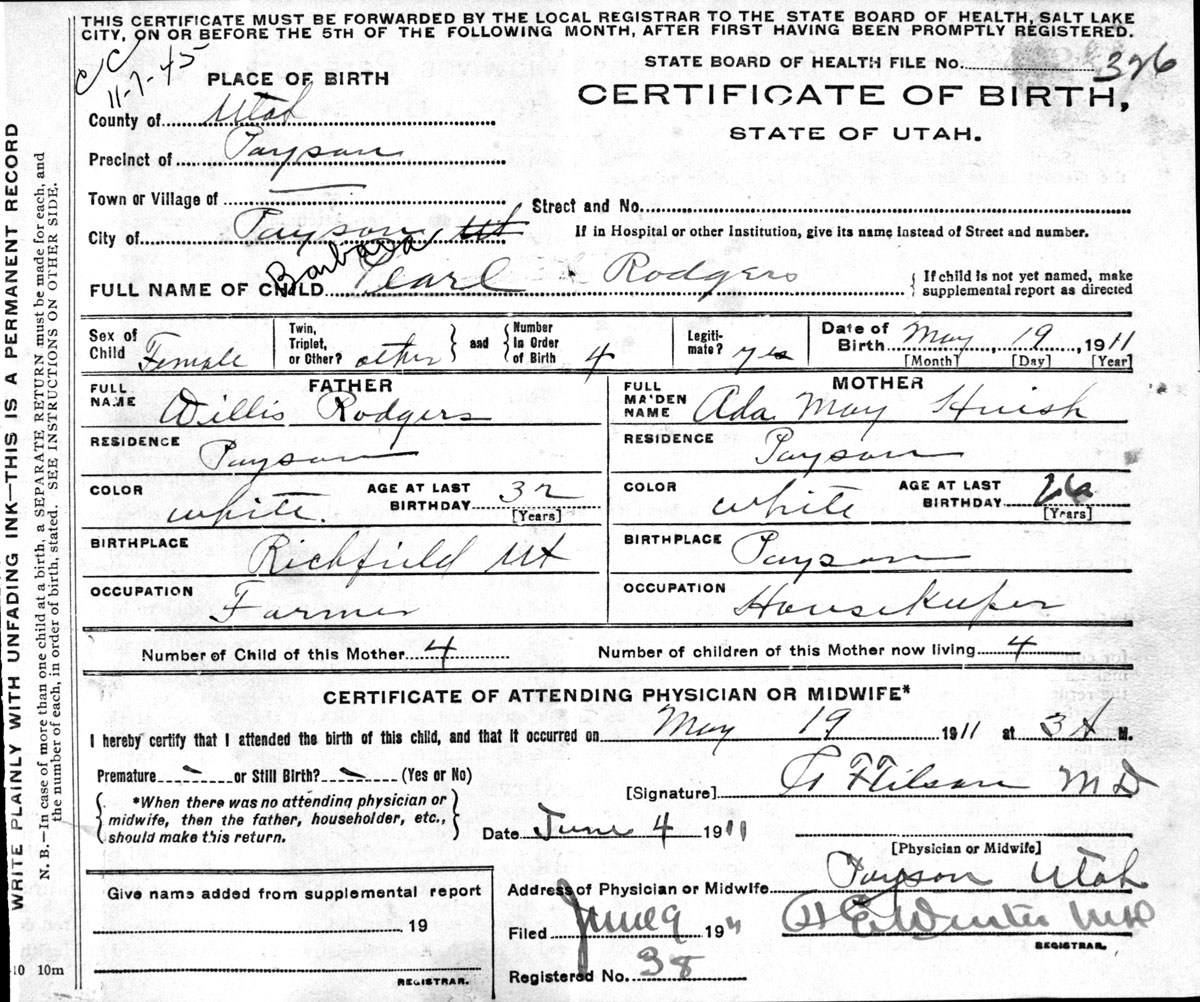 THIS CERTIFICATE MUST BE FORWARDED BY THE LOCAL REGISTRAR TO THE STATE BOARD OF HEALTH, SALT LAKE
CITY, ON OR BEFORE THE 5TH OF THE FOLLOWING MONTH, AFTER FIRST HAVING BEEN PROMPTLY REGISTERED.
CC
11-7-45
STATE BOARD OF HEALTH FILE NO. 326
PLACE OF BIRTH
CERTIFICATE OF BIRTH,
STATE OF UTAH.
County of Utah
Precinct of Payson
Town or Village of
Street and No.
City of Payson, Ut
If in Hospital or other Institution, give its name instead of Street and number.
Barbara
FULL NAME OF CHILD Pearl Rodgers
{ If child is not yet named, make
supplemental report as directed
Sex of Child Female
Twin, Triplet, or Other? other
and
Number in Order of Birth 4
Legiti-mate? yes
Date of Birth May 19, 1911
[Month] [Day] [Year]
FATHER
FULL NAME Willis Rodgers
MOTHER
FULL MAIDEN NAME Ada May Huish
RESIDENCE Payson
RESIDENCE Payson
COLOR white.
AGE AT LAST BIRTHDAY 32
[Years]
COLOR white
AGE AT LAST BIRTHDAY 26
[Years]
BIRTHPLACE Richfield Ut
BIRTHPLACE Payson
OCCUPATION Farmer
OCCUPATION Housekeeper
Number of Child of this Mother 4
Number of children of this Mother now living 4
CERTIFICATE OF ATTENDING PHYSICIAN OR MIDWIFE*
I hereby certify that I attended the birth of this child, and that it occurred on May 19 1911 at 3 A M.
Premature - or Still Birth? - (Yes or No)
[Signature] M D
*When there was no attending physician or
midwife, then the father, householder, etc.,
should make this return.
Date June 4 1911
[Physician or Midwife]
Address of Physician or Midwife Payson Utah
Give name added from supplemental report
19
REGISTRAR.
Filed June 9 1911
Winter
REGISTRAR.
Registered No. 38
10 10m
WRITE PLAINLY WITH UNFADING INK—THIS IS A PERMANENT RECORD
N. B.—In case of more than one child at a birth, a SEPARATE RETURN must be made for each, and
the number of each, in order of birth, stated. SEE INSTRUCTIONS ON OTHER SIDE.